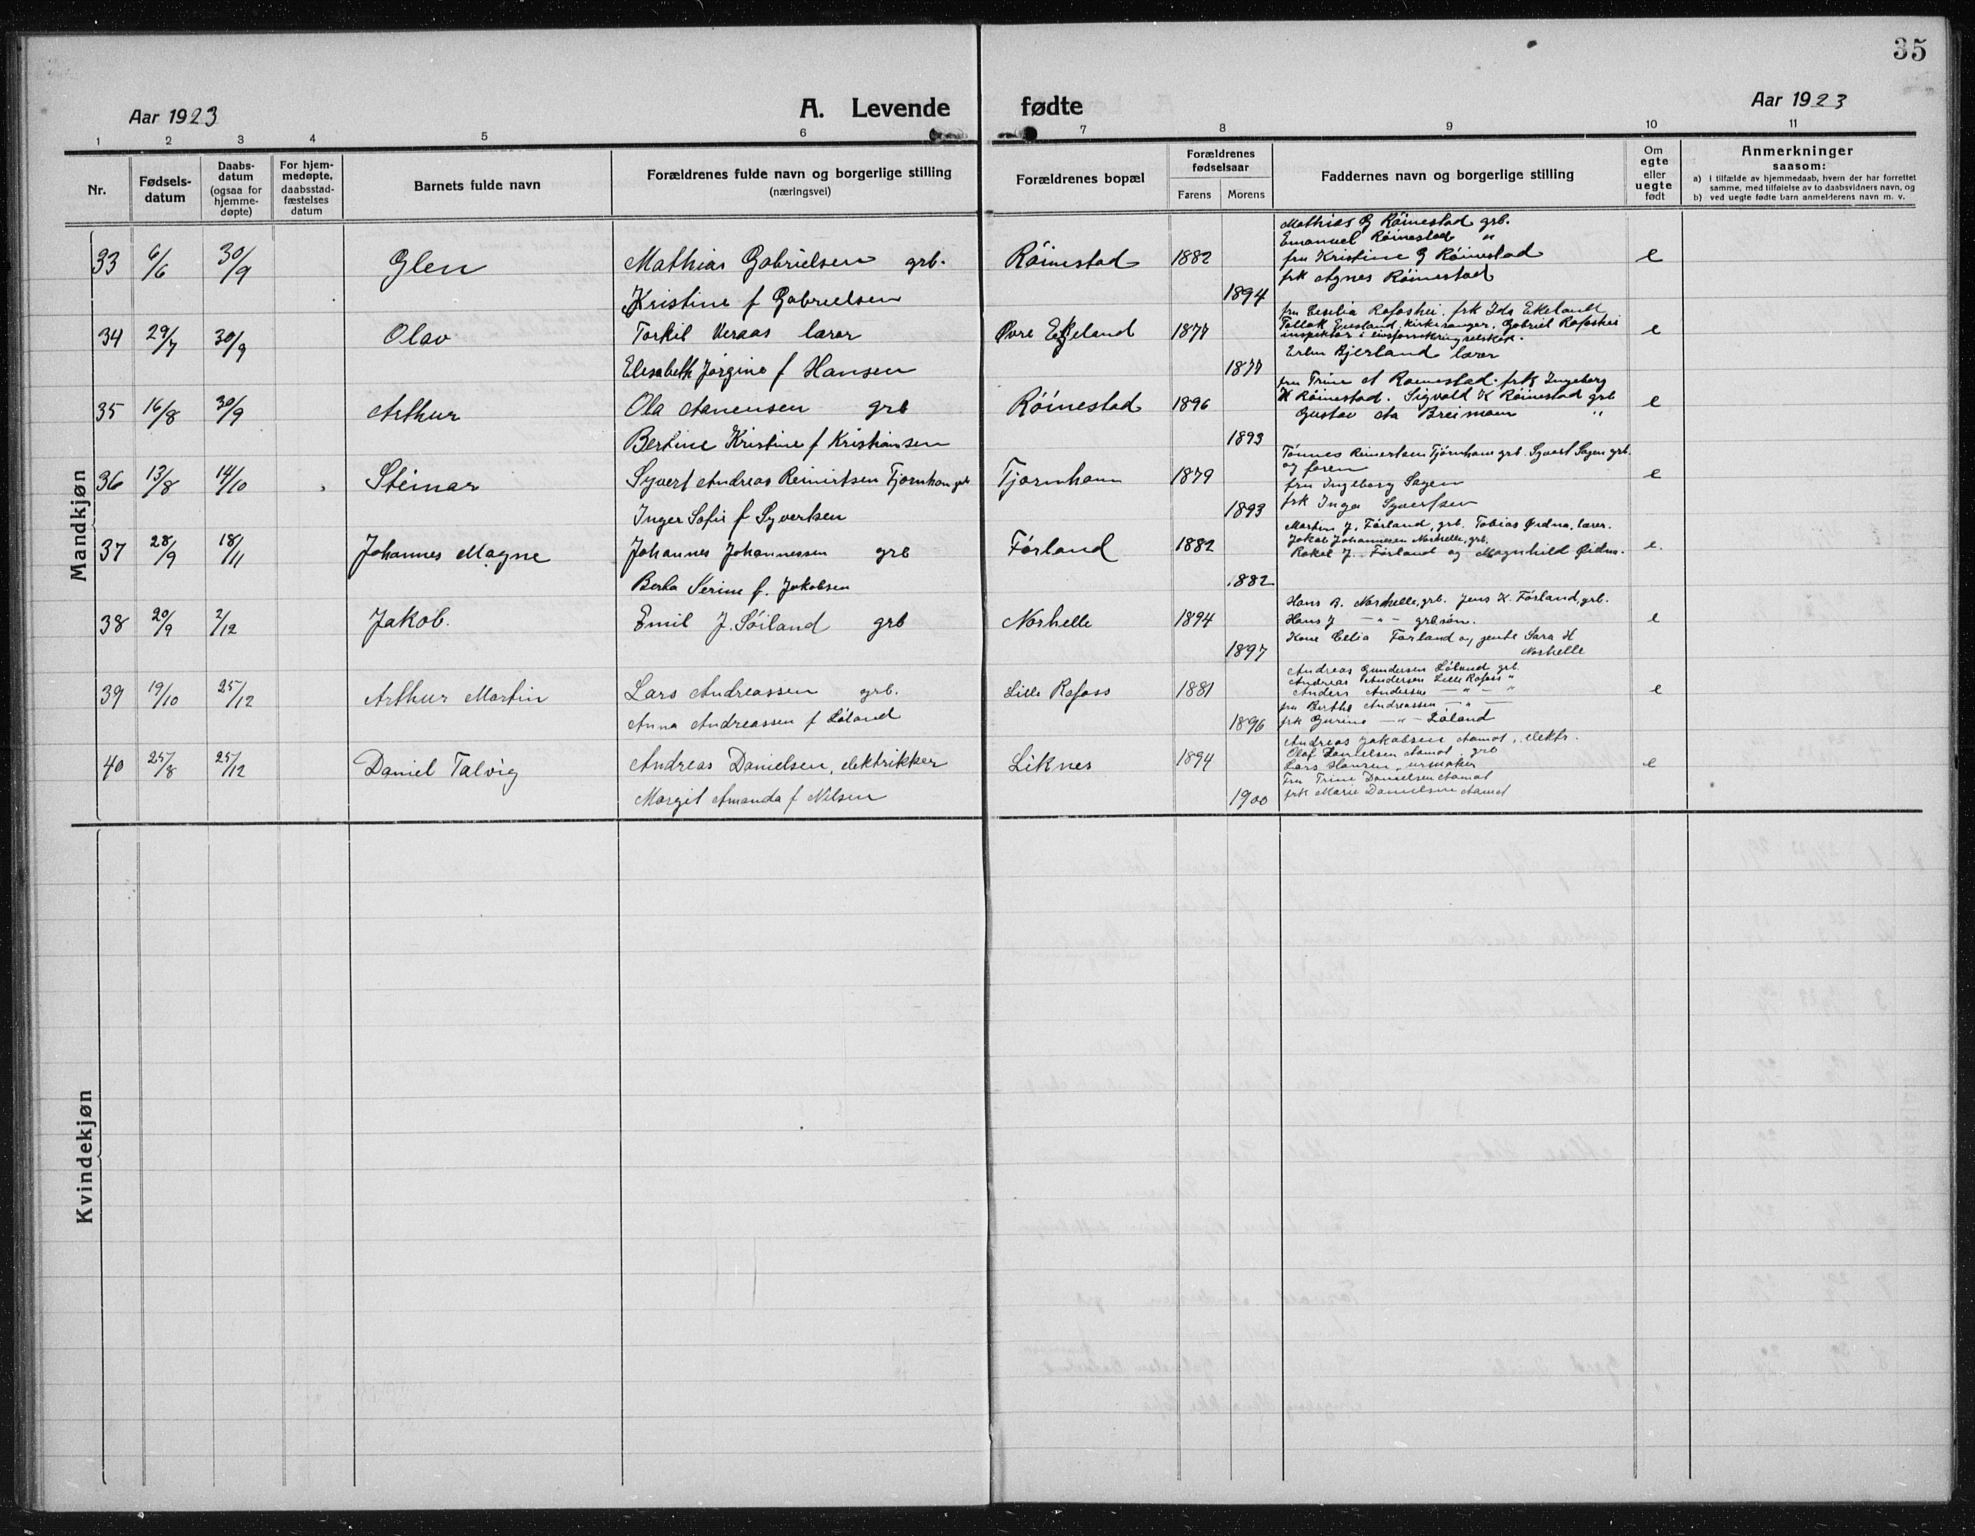 35
Aar 1923
A. Levende fødte
Aar 1923
1 2 3 4 5 6 7 8 9 10 11
Nr.
Fødsels-
datum
Daabs-
datum
(ogsaa for
hjemme-
døpte)
For hjem-
medøpte,
daabsstad-
fæstelses
datum
Barnets fulde navn
Forældrenes fulde navn og borgerlige stilling
(næringsvei)
Forældrenes bopæl
Forældrenes
fødselsaar
Farens Morens
Faddernes navn og borgerlige stilling
Om
egte
eller
uegte
født
Anmerkninger
saasom:
a) i tilfælde av hjemmedaab, hvem der har forrettet
samme, med tilføielse av to daabsvidners navn, og
b) ved uegte fødte barn anmelderens navn m. v.
Mandkjøn
Mathias G Röinestad grb.
Emanuel Röinestad "
33 6/6 30/9 Glen Mathias Gabrielsen grb. Röinestad 1882 fru Kristine G Röinestad e
frk Agnes Röinestad
Kristine f Gabrielsen 1894
fru Cecilia Rafoshei, frk Ida Ekeland
34 29/7 30/9 Olav Torkil Veraas lærer Øvre Eikeland 1877 Tollak Egesland, kirkesanger. Gabriel Rafoshei e
inspektør i livsforsikringselskab.
Elisabeth Jørgine f Hansen 1877 Bjerland lærer
fru Trine A Roinestad. frk Ingeborg
35 16/8 30/9 Arthur Ola Aanensen grb Röinestad 1896 K Röinestad. Sigvald K Röinestad grb e
Gustav Aa Breimoen "
Bertine Kristine f Kristiansen 1893
Tønnes Reinertsen Tjørnhom grb. Syvert Sagen grb.
36 13/8 14/10 Steinar Syvert Andreas Reinertsen Tjørnhom grb Tjørnhom 1879 og faren e
fru Ingeborg Sagen
Inger Sofie f Syvertsen 1893 frk Inga Syvertsen
Martin J. Førland, grb. Tobias Øidna, lærer.
37 28/9 18/11 Johannes Magne Johannes Johannessen grb Førland 1882 Jakob Johannesen Norhelle, grb. e.
Rakel J. Førland og Magnhild Øidna.
Berta Serine f. Jakobsen 1882
Hans B. Norhelle, grb. Jens K. Førland, grb.
38 20/9 2/12 Jakob. Emil J. Söiland grb Norhelle 1894 Hans J — " — grb.søn. e
1897 Kone Celia Førland og gente Sara H
Norhelle
Andreas Gundersen Löland grb.
39 19/10 25/12 Arthur Martin Lars Andreassen grb. Lille Rafoss 1881 Andreas Andersen Lille Rafoss " e
Anders Andersen — " — "
fru Berthe Andreassen — " —
Anna Andreassen f Löland 1896 frk Gurine — " — Löland
Andreas Jakobsen Aamot, elektr.
Olaf Danielsen Aamot, grb
40 25/8 25/12 Daniel Talvig Andreas Danielsen, elektrikker Liknes 1894 Lars Hansen, urmaker e
Fru Trine Danielsen Aamot
Margit Amanda f Nilsen 1900 frk Marie Danielsen Aamot
Kvindekjøn